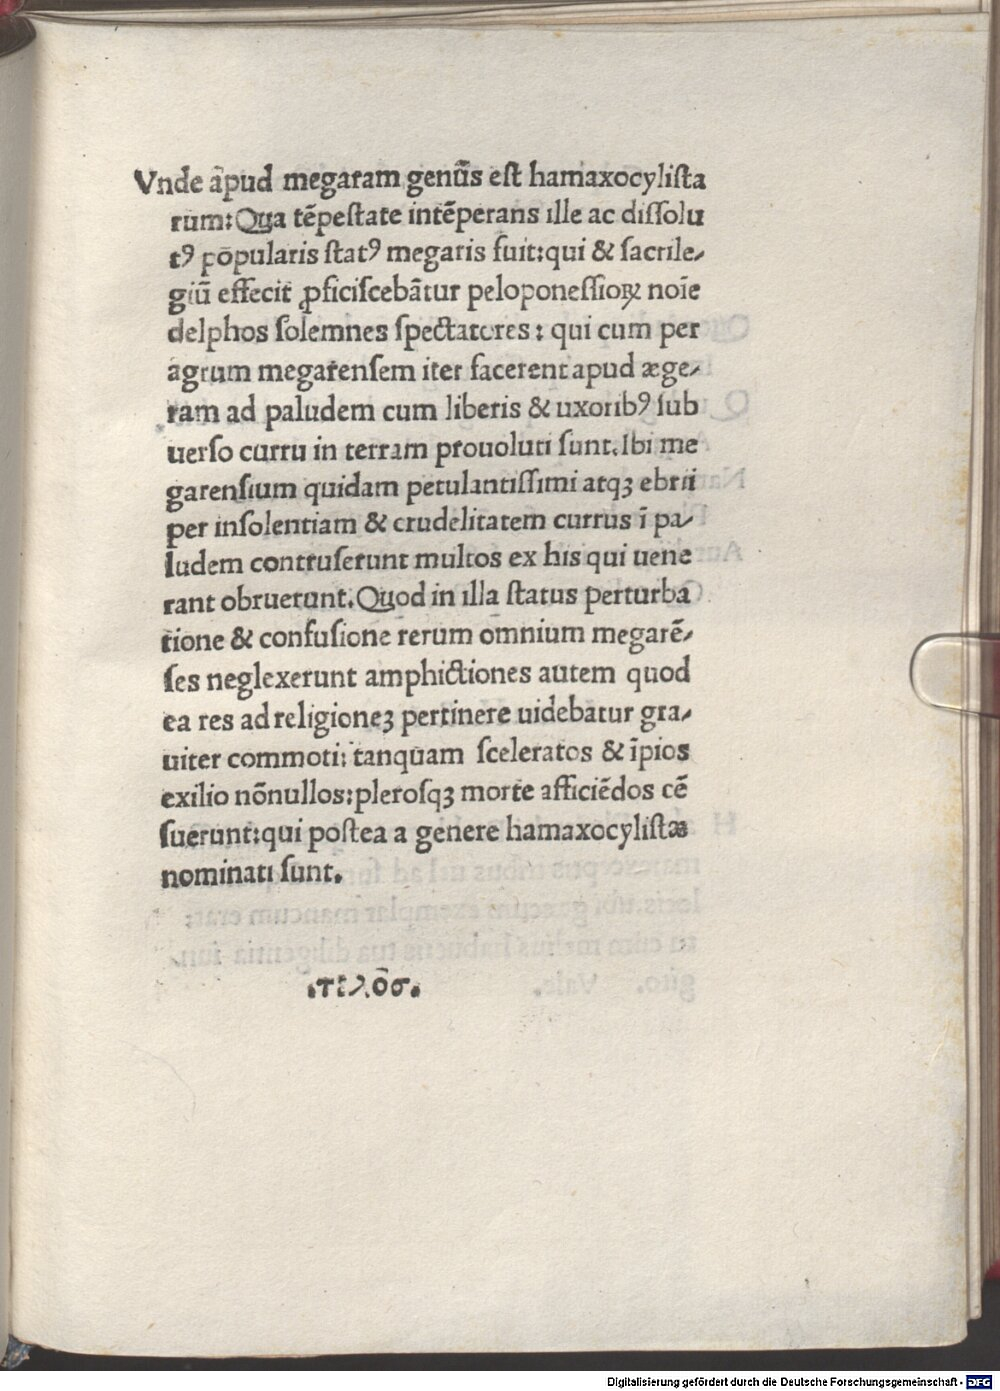 Vnde apud megaram genus est hamaxocylista
rum: Qua tēpestate intēperans ille ac dissolu
tꝰ popularis statꝰ megaris fuit: qui & sacrile/
giū effecit ꝓficiscebātur peloponessioꝝ noīe
delphos solemnes spectatores: qui cum per
agrum megarensem iter facerent apud æge/
ram ad paludem cum liberis & uxoribꝰ sub
uerso curru in terram prouoluti sunt. Ibi me
garensium quidam petulantissimi atqꝫ ebrii
per insolentiam & crudelitatem currus ī pa/
ludem contruserunt multos ex his qui uene
rant obruerunt. Quod in illa status perturba
tione & confusione rerum omnium megarē/
ses neglexerunt amphictiones autem quod
ea res ad religioneꝫ pertinere uidebatur gra/
uiter commoti: tanquam sceleratos & īpios
exilio nōnullos: plerosqꝫ morte afficiēdos cē
suerunt: qui postea a genere hamaxocylistæ
nominati sunt.
.τέλος.
Digitalisierung gefördert durch die Deutsche Forschungsgemeinschaft - DFG